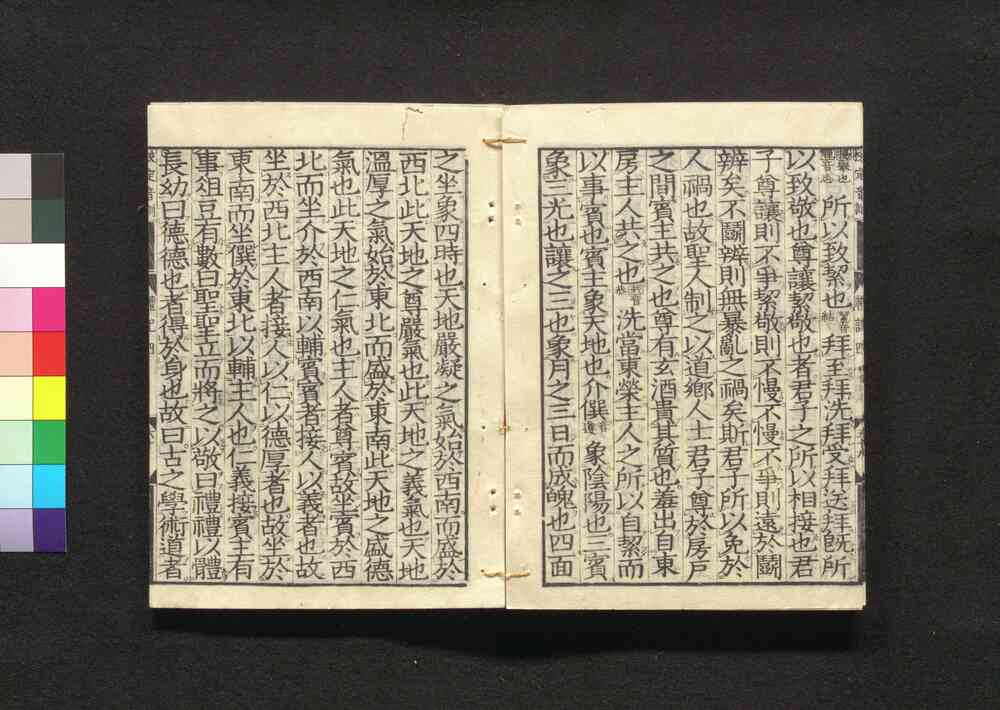 所以致絜也拜至拜洗拜受拜送拜旣所
以致敬也尊讓絜敬也者君子之所以相接也君
子尊讓則不爭絜敬則不慢不慢不爭則遠於鬪
辨矣不鬪辨則無暴亂之禍矣斯君子所以免於
人禍也故聖人制之以道鄕人士君子尊於房戶
之間賓主共之也尊有玄酒貴其質也羞出自東
房主人共之也洗當東榮主人之所以自絜而
以事賓也賓主象天地也介僎象陰陽也三賓
象三光也讓之三也象月之三日而成魄也四面
之坐象四時也天地嚴凝之氣始於西南而盛於
西北此天地之尊嚴氣也此天地之義氣也天地
溫厚之氣始於東北而盛於東南此天地之盛德
氣也此天地之仁氣也主人者尊賓故坐賓於西
北而坐介於西南以輔賓賓者接人以義者也故
坐於西北主人者接人以仁以德厚者也故坐於
東南而坐僎於東北以輔主人也仁義接賓主有
事俎豆有數曰聖聖立而將之以敬曰禮禮以體
長幼曰德德也者得於身也故曰古之學術道者